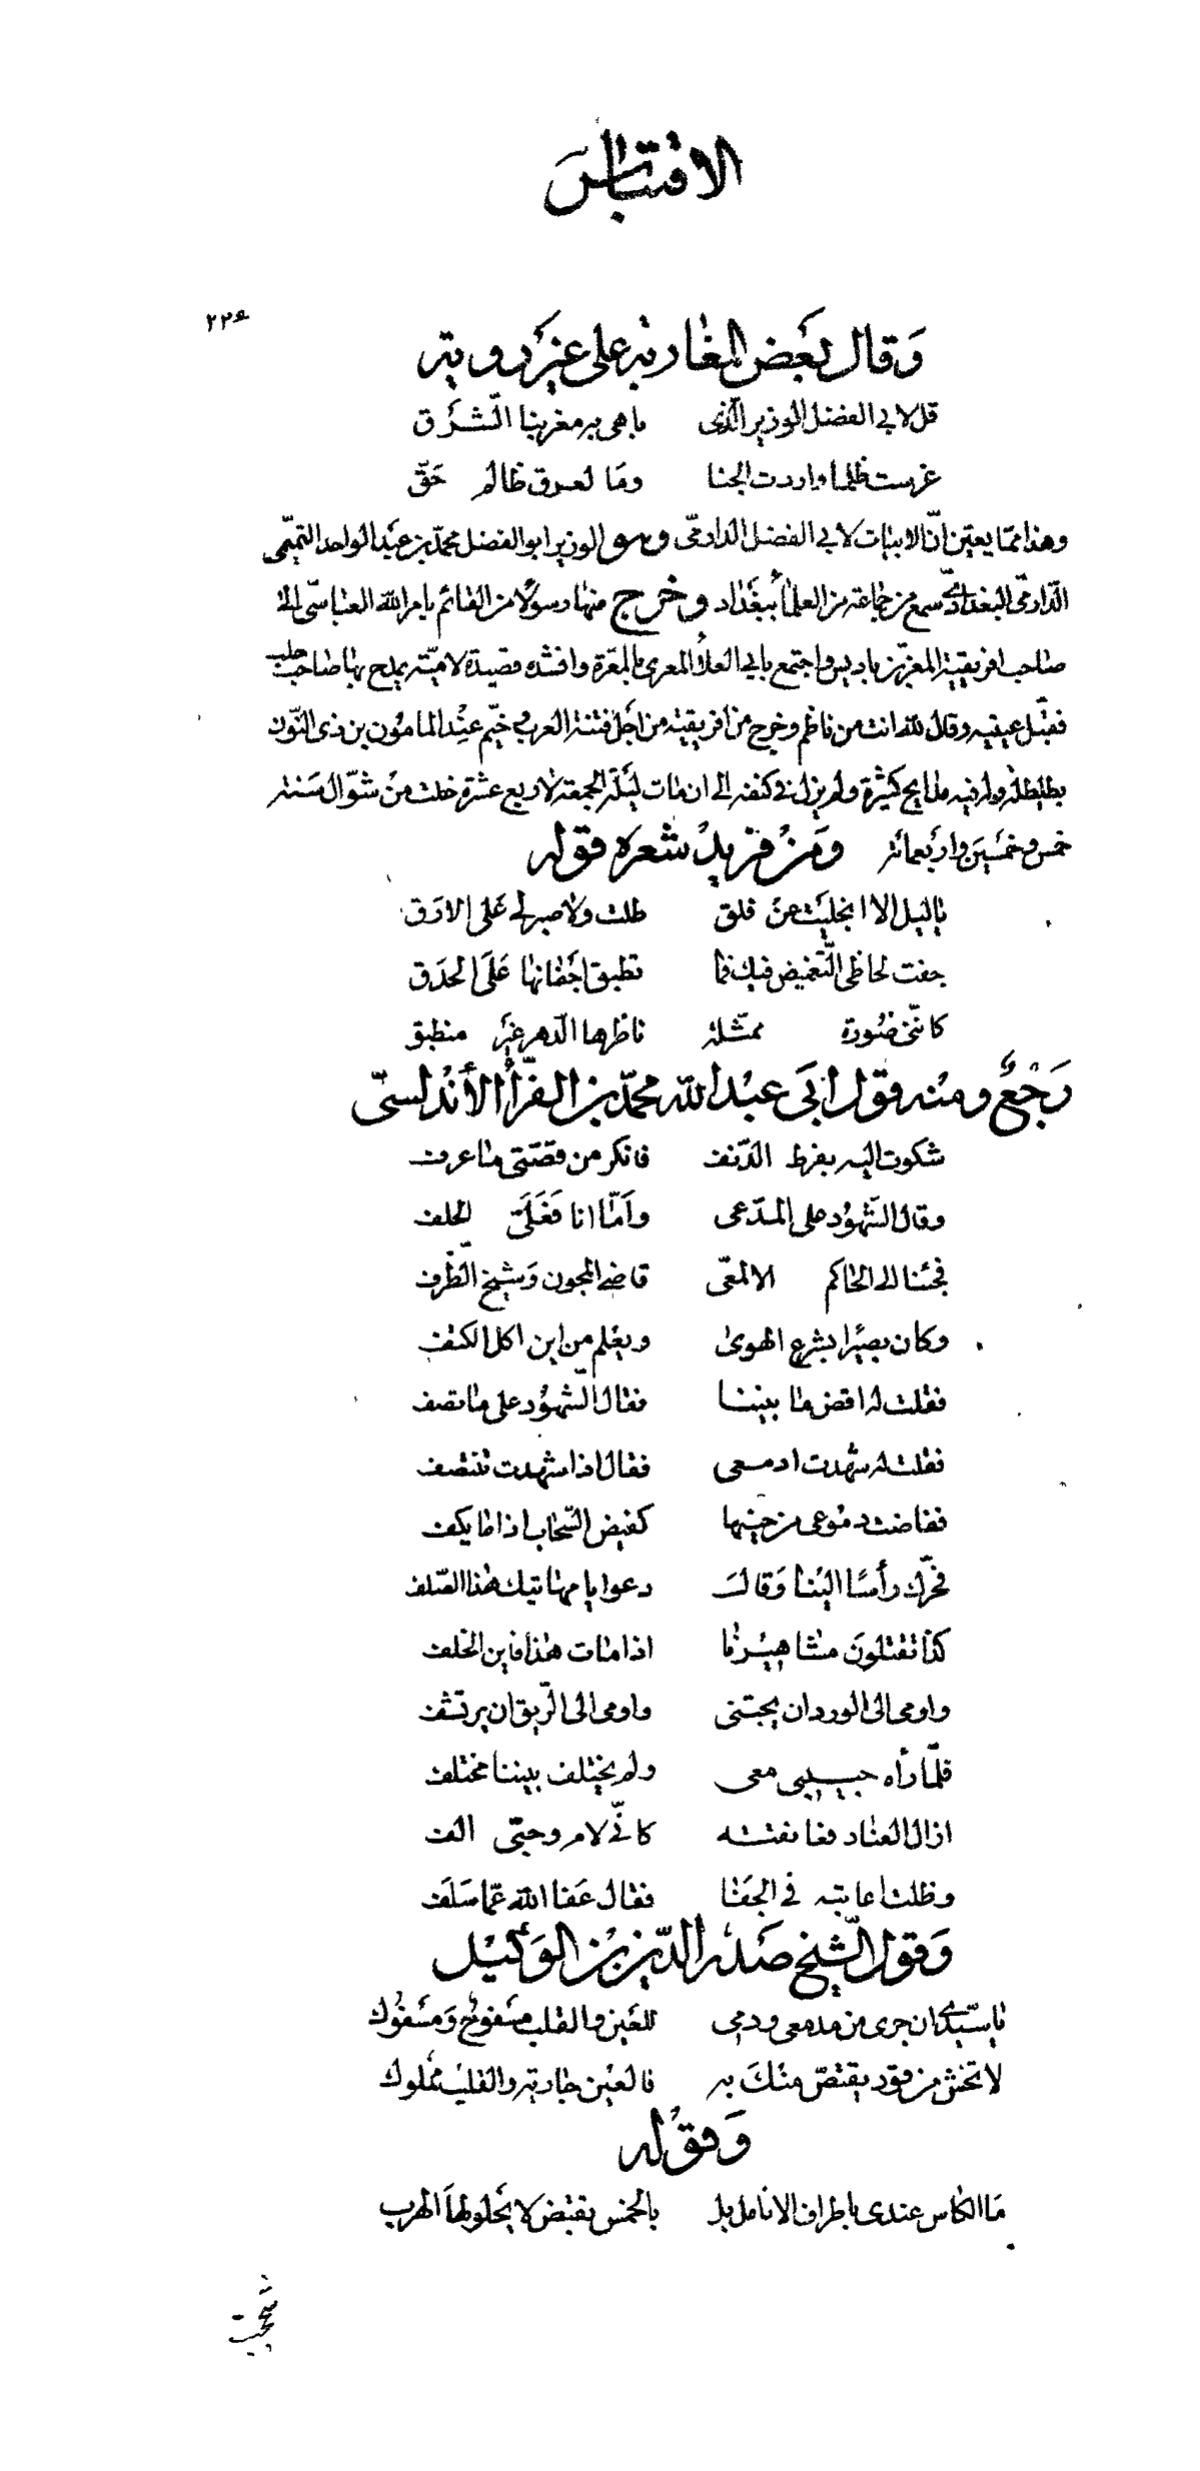 الاقتباس
٢٢٤
وَقال بعَض المغاربه على غير رويته
قل لابي الفضل الوزير الّذى باهى به مغربنا الشّرَق
غرست ظلما واردت الجنا ومَا لعرق ظالم حَقّ
وهذا ممّا يعيّن انّ الابيات لابي الفضل الدارمّى وهو الوزير ابو الفضل محمّد بن عبَد الواحد التميمّى
الدّارمّى البغدادىّ سمع من جماعة من العلمآ ببغَداد وخرج منها رسولا من القائم بامر اللّه العباسّى الى
صاحب افريقية المعز بن باديس واجتمع بابي العلآ المعرى بالمعّرة وانشده قصيدة لاميّه يمدح بها صاحب حلب
فقبّل عينيه وقال للّه انت من ناظم وخرج من افريقيه من اجَل فتنة العرب وخيّم عنِد المامون بن ذى النّون
بطليطله وله فيه مدايح كثيرة ولم يزل في كنفه الى ان مات ليَلة الجمعة لاربع عشرة خلت منَ شوّال سَنه
خمس وخمَسين واربَعمائه ومَن فريد شعره قوله
ياليل الا انجليَت عنَ فلق طلت ولا صبر لي عَلى الارَق
جفت لحاظى التّغميض فيك فما تطبق اجَفانها عَلَى الحدَق
كانّنى صُورة ممّثله ناظرها الدّهر غيَر منطبق
رَجْعٌ ومنْه قول ابَى عبْد اللّه محمّد بن الفرّآ الأندلسىّ
شكوت اليه بفرط الدّنف فانكر من قصّتى ما عرف
وقال الشّهوُد على المدّعى وَامّا انا فَعَلَىّ الحلف
فجئنا الى الحاكم الالمعّى قاضي المجون وَشيخ الظّرف
وكان بصيَرا بشرع الهوى ويعَلم من اين اكل الكتف
فقلت له اقض ما بيننا فقال الشّهوُد على ما تصف
فقلت له شهدت ادمعى فقال اذا شهدت تنتصف
ففاضت دموُعى من حينها كفيض السّحاب اذا ما يكف
فحّرك رأسَا اليَنا وَقال دعوا يا مهاتيك هذا الصّلف
كذا تقتلونَ مشاهيَرنا اذا مات هذا فاين الخلف
واومى الى الورد ان يجتنى واومى الى الرّيق ان يرتشف
فلمّا رأه حبيبى معى ولم يختلف بيننا مختلف
ازال العناد فعانقته كانّي لام وحبّى الف
وظلت اعاتبه في الجَفا فقال عَفا اللّه عمّا سَلَف
وَقول الشّيخ صَدْر الدّين بْن الوَكيْل
يا سيّدى ان جرى من مدمعى ودمي للعَين والقلب مسَفوُح وَمسَفوُك
لا تخش من قود يقتصّ منكَ به فالعيَن جارية والقلب ممْلوك
وَقوْله
مَا الكاس عندى باطراف الانامل بل بالخمس تقبض لا يحَلو لهاَ الهرب
شججت